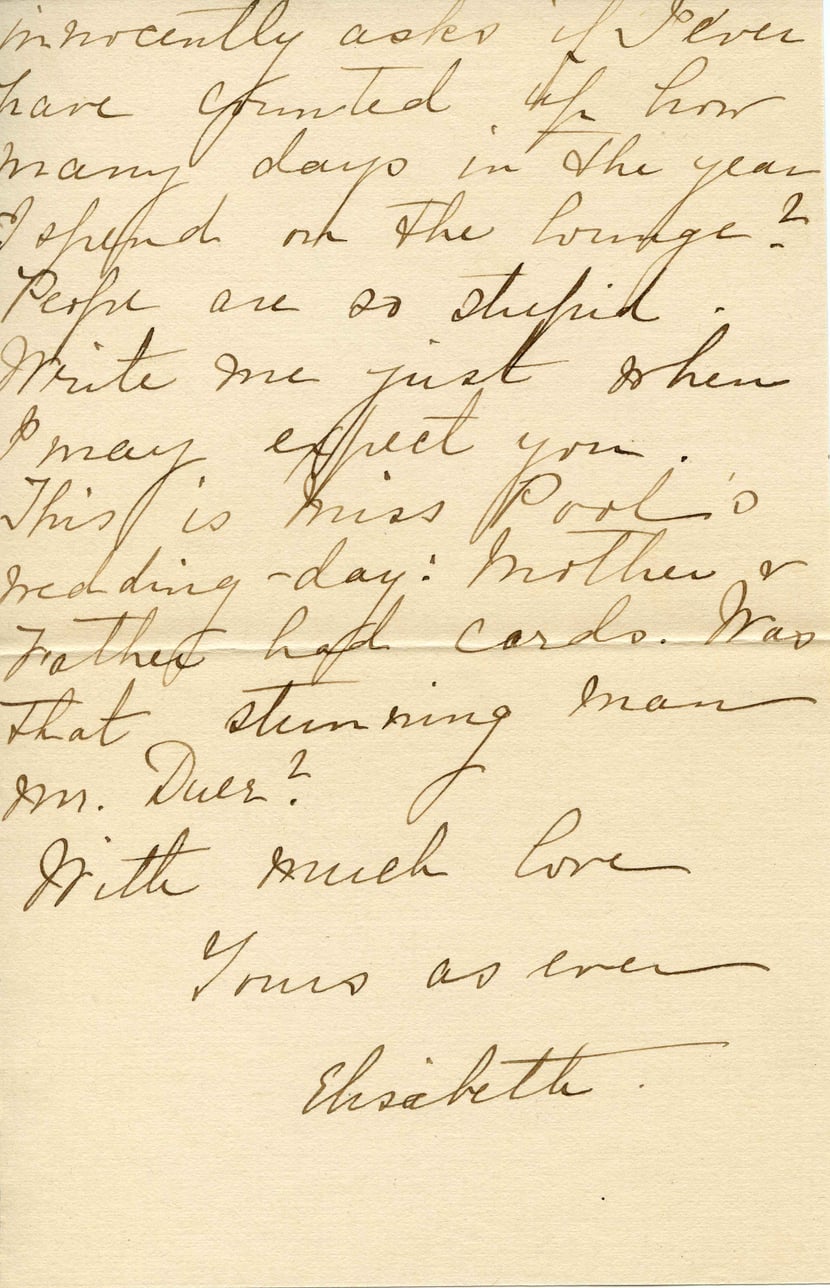 innocently asks if I ever
have counted up how
many days in the year
I spend on the lounge?
People are so stupid.
Write me just when
I may expect you.
This is Miss Pool's
wedding-day: Mother &
Father had cards. Was
that stunning man
Mr. Duer?
With much love
Yours as ever
Elisabeth.